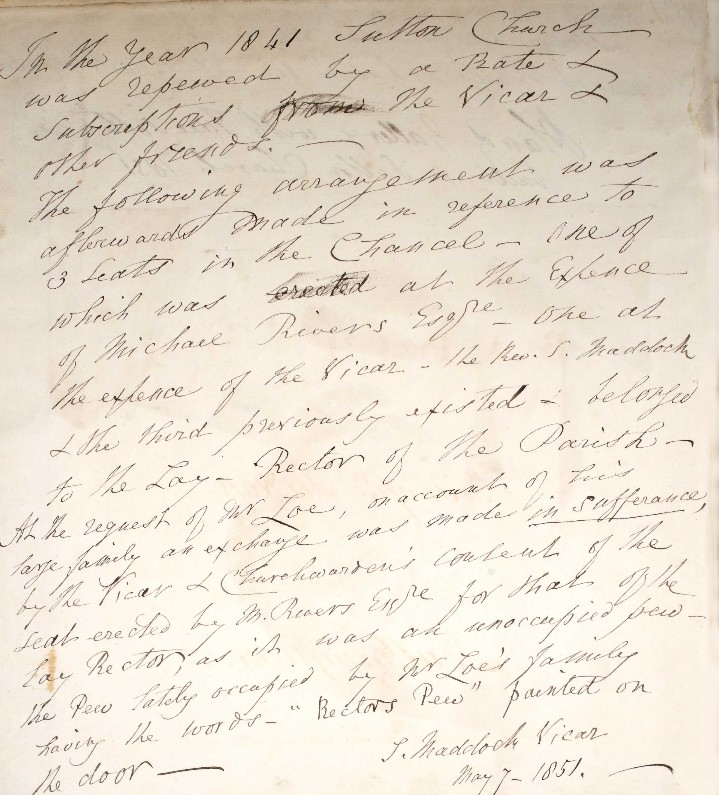 In the Year 1841 Sutton Church
was repewed by a Rate &
Subscriptions from the Vicar &
other friends. —
The following arrangement was
afterwards made in reference to
3 Seats in the Chancel – one of
which was erected at the Expence
of Michael Rivers Esqre – one at
the expence of the Vicar – the Rev. S. Maddock
& the third previously existed = belonged
to the Lay – Rector of the Parish –
At the request of Mr Loe, on account of his
large family an exchange was made in sufferance,
by the Vicar & Churchwarden's consent of the
seat erected by M. Rivers Esqre for that of the
Lay Rector, as it was an unoccupied pew –
the Pew lately occupied by Mr Loe's family
having the words – "Rectors Pew" painted on
the door —
S. Maddock Vicar
May 7 – 1851. —